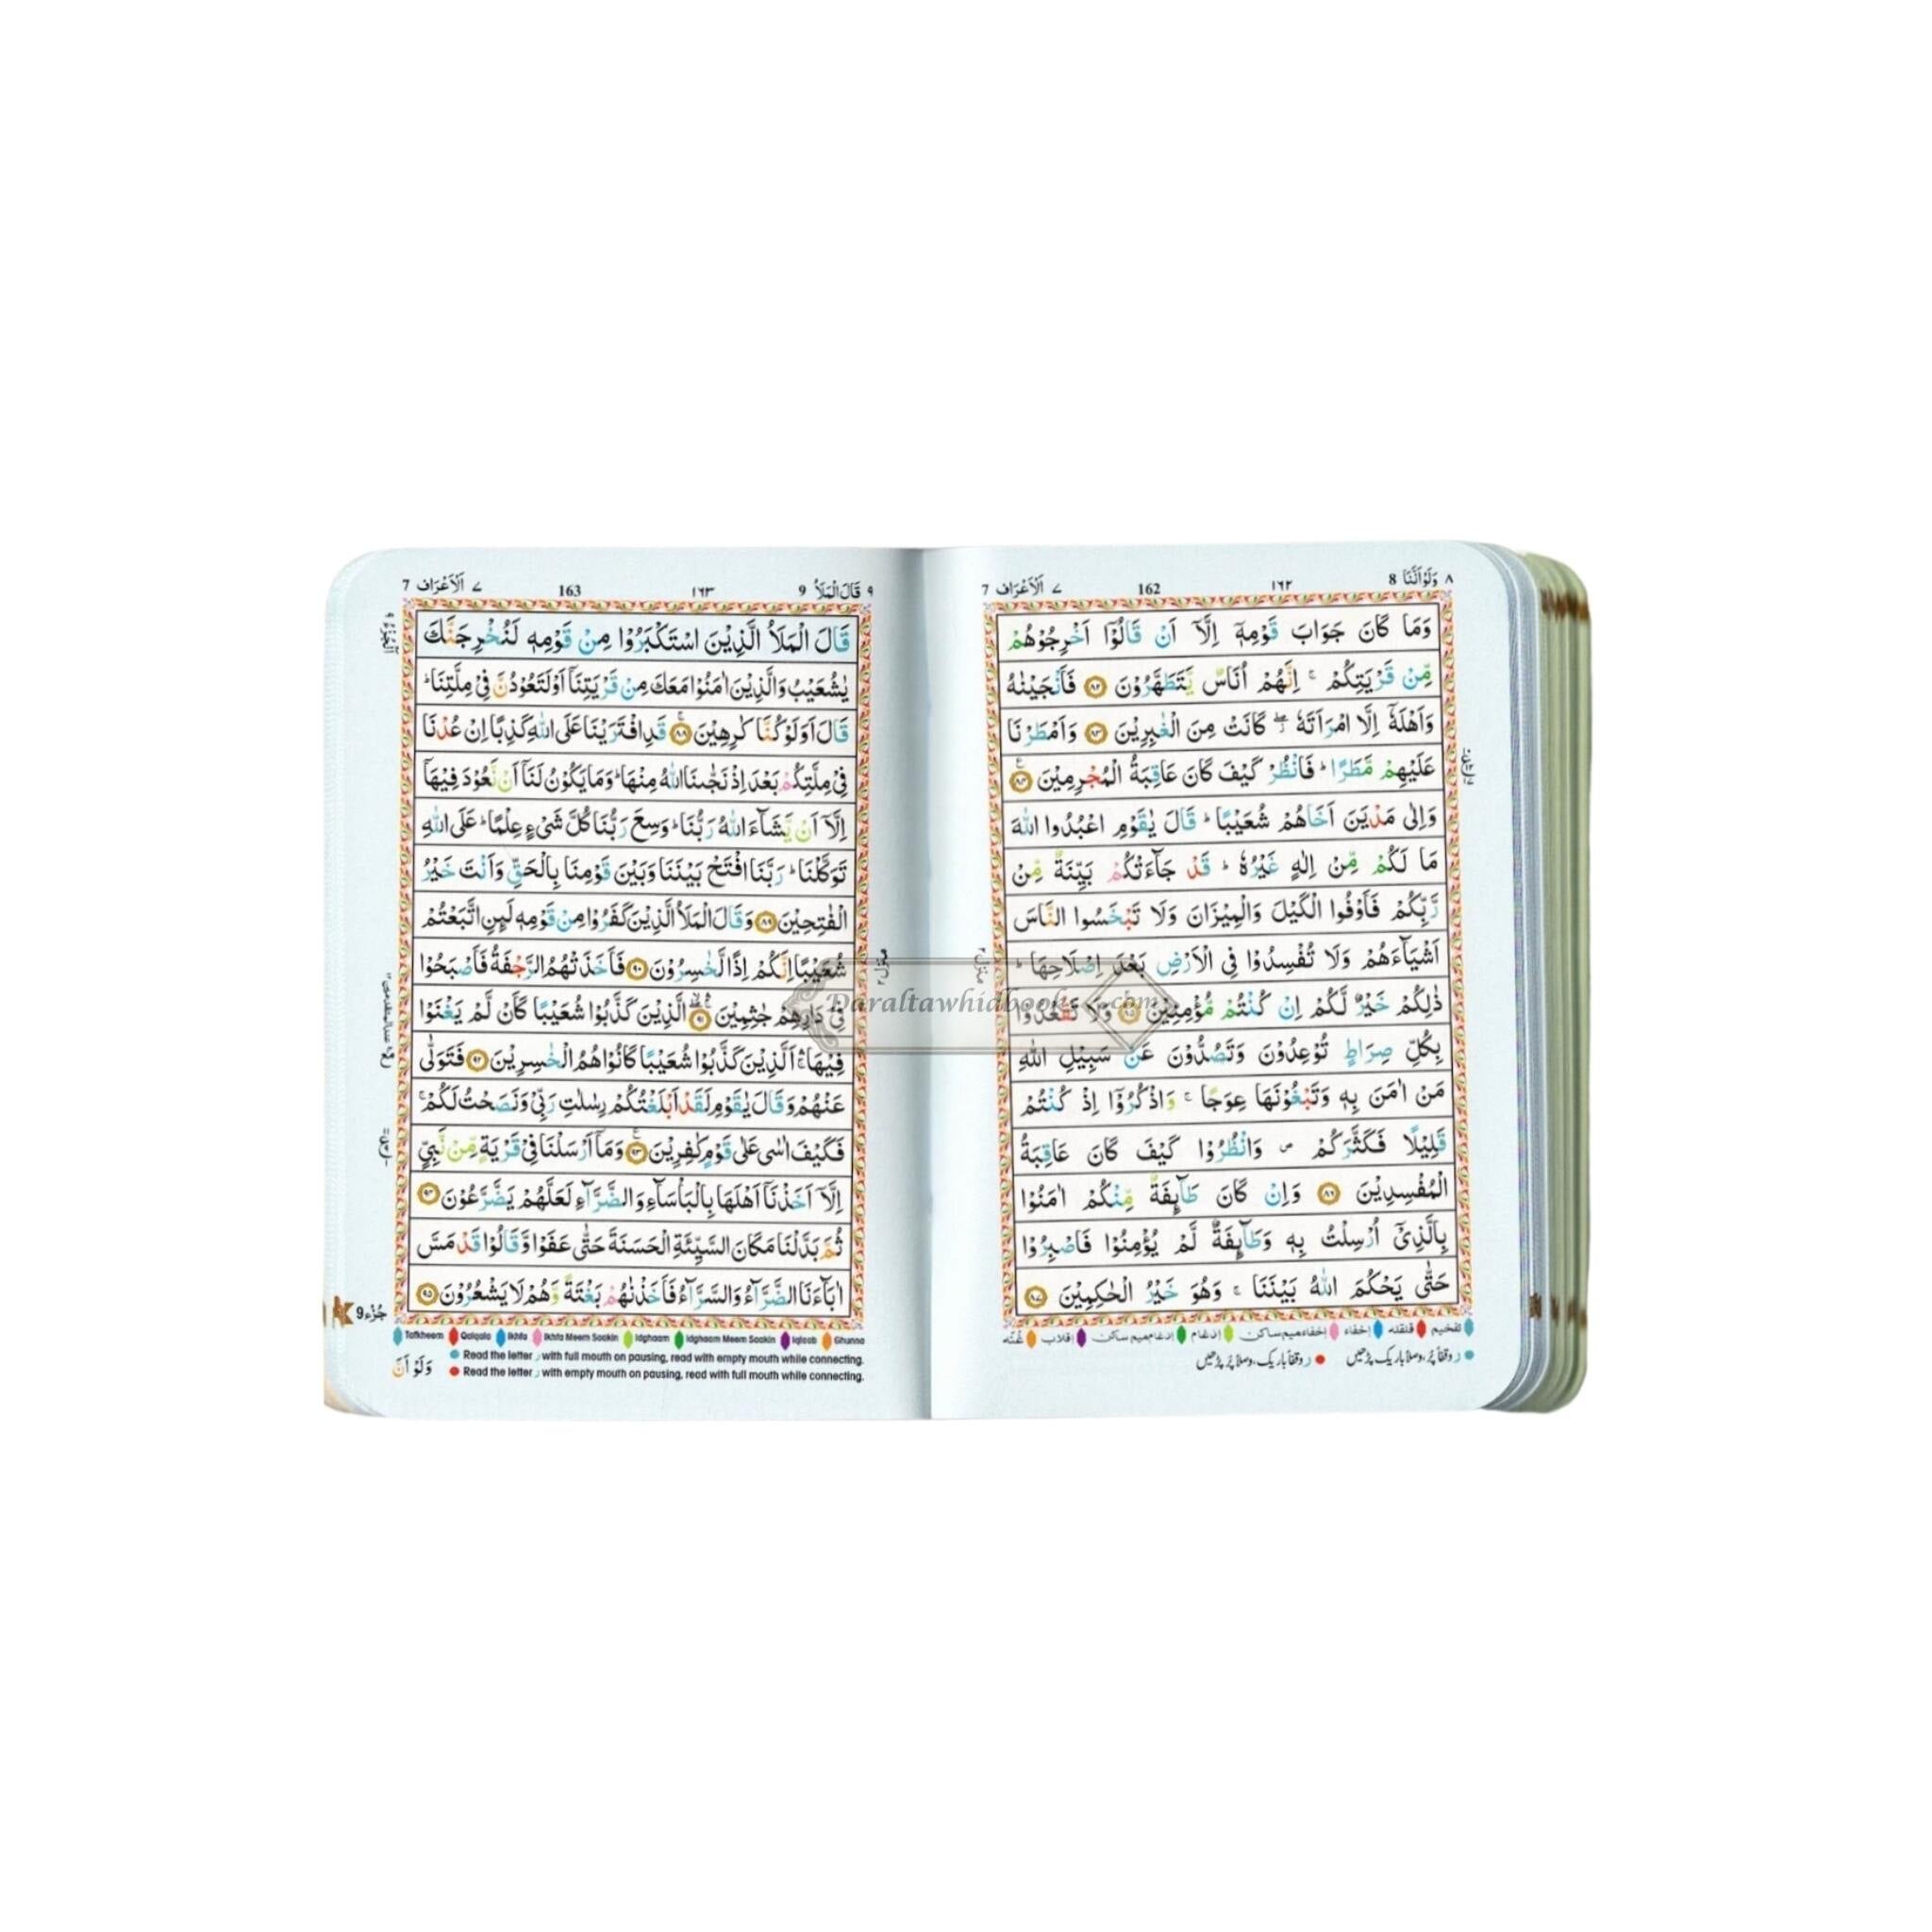 ٨ وَلَوْ اَنَّنَا 8
١٦٢
162
٧ اَلْاَعْرَاف 7
وَمَا كَانَ جَوَابَ قَوْمِهٖۤ اِلَّاۤ اَنْ قَالُوْۤا اَخْرِجُوْهُمْ
مِّنْ قَرْيَتِكُمْ ۚ اِنَّهُمْ اُنَاسٌ يَّتَطَهَّرُوْنَ ﴿٨٢﴾ فَاَنْجَيْنٰهُ
وَاَهْلَهٗۤ اِلَّا امْرَاَتَهٗ ۖ كَانَتْ مِنَ الْغٰبِرِيْنَ ﴿٨٣﴾ وَاَمْطَرْنَا
عَلَيْهِمْ مَّطَرًا ؕ فَانْظُرْ كَيْفَ كَانَ عَاقِبَةُ الْمُجْرِمِيْنَ ﴿٨٤﴾
وَاِلٰى مَدْيَنَ اَخَاهُمْ شُعَيْبًا ؕ قَالَ يٰقَوْمِ اعْبُدُوا اللّٰهَ
مَا لَكُمْ مِّنْ اِلٰهٍ غَيْرُهٗ ؕ قَدْ جَآءَتْكُمْ بَيِّنَةٌ مِّنْ
رَّبِّكُمْ فَاَوْفُوا الْكَيْلَ وَالْمِيْزَانَ وَلَا تَبْخَسُوا النَّاسَ
اَشْيَآءَهُمْ وَلَا تُفْسِدُوْا فِى الْاَرْضِ بَعْدَ اِصْلَاحِهَا ؕ
ذٰلِكُمْ خَيْرٌ لَّكُمْ اِنْ كُنْتُمْ مُّؤْمِنِيْنَ ﴿٨٥﴾ وَلَا تَقْعُدُوْا
بِكُلِّ صِرَاطٍ تُوْعِدُوْنَ وَتَصُدُّوْنَ عَنْ سَبِيْلِ اللّٰهِ
مَنْ اٰمَنَ بِهٖ وَتَبْغُوْنَهَا عِوَجًا ۚ وَاذْكُرُوْۤا اِذْ كُنْتُمْ
قَلِيْلًا فَكَثَّرَكُمْ ۪ وَانْظُرُوْا كَيْفَ كَانَ عَاقِبَةُ
الْمُفْسِدِيْنَ ﴿٨٦﴾ وَاِنْ كَانَ طَآئِفَةٌ مِّنْكُمْ اٰمَنُوْا
بِالَّذِىْۤ اُرْسِلْتُ بِهٖ وَطَآئِفَةٌ لَّمْ يُؤْمِنُوْا فَاصْبِرُوْا
حَتّٰى يَحْكُمَ اللّٰهُ بَيْنَنَا ۚ وَهُوَ خَيْرُ الْحٰكِمِيْنَ ﴿٨٧﴾
تفخيم قلقله إخفاء إخفاءميم ساكن إدغام إدغام ميم ساكن إقلاب غُنّه
ر وقفاً پُر، وصلاً باریک پڑھیں
ر وقفاً باریک، وصلاً پُر پڑھیں
منزل ٢
٩ قَالَ الْمَلَاُ 9
١٦٣
163
٧ اَلْاَعْرَاف 7
قَالَ الْمَلَاُ الَّذِيْنَ اسْتَكْبَرُوْا مِنْ قَوْمِهٖ لَنُخْرِجَنَّكَ
يٰشُعَيْبُ وَالَّذِيْنَ اٰمَنُوْا مَعَكَ مِنْ قَرْيَتِنَاۤ اَوْ لَتَعُوْدُنَّ فِىْ مِلَّتِنَا ؕ
قَالَ اَوَلَوْ كُنَّا كٰرِهِيْنَ ﴿٨٨﴾ قَدِ افْتَرَيْنَا عَلَى اللّٰهِ كَذِبًا اِنْ عُدْنَا
فِىْ مِلَّتِكُمْ بَعْدَ اِذْ نَجّٰىنَا اللّٰهُ مِنْهَا ؕ وَمَا يَكُوْنُ لَنَاۤ اَنْ نَّعُوْدَ فِيْهَاۤ
اِلَّاۤ اَنْ يَّشَآءَ اللّٰهُ رَبُّنَا ؕ وَسِعَ رَبُّنَا كُلَّ شَىْءٍ عِلْمًا ؕ عَلَى اللّٰهِ
تَوَكَّلْنَا ؕ رَبَّنَا افْتَحْ بَيْنَنَا وَبَيْنَ قَوْمِنَا بِالْحَقِّ وَاَنْتَ خَيْرُ
الْفٰتِحِيْنَ ﴿٨٩﴾ وَقَالَ الْمَلَاُ الَّذِيْنَ كَفَرُوْا مِنْ قَوْمِهٖ لَئِنِ اتَّبَعْتُمْ
شُعَيْبًا اِنَّكُمْ اِذًا لَّخٰسِرُوْنَ ﴿٩٠﴾ فَاَخَذَتْهُمُ الرَّجْفَةُ فَاَصْبَحُوْا
فِىْ دَارِهِمْ جٰثِمِيْنَ ﴿٩١﴾ الَّذِيْنَ كَذَّبُوْا شُعَيْبًا كَاَنْ لَّمْ يَغْنَوْا
فِيْهَا ۛ اَلَّذِيْنَ كَذَّبُوْا شُعَيْبًا كَانُوْا هُمُ الْخٰسِرِيْنَ ﴿٩٢﴾ فَتَوَلّٰى
عَنْهُمْ وَقَالَ يٰقَوْمِ لَقَدْ اَبْلَغْتُكُمْ رِسٰلٰتِ رَبِّىْ وَنَصَحْتُ لَكُمْ ۚ
فَكَيْفَ اٰسٰى عَلٰى قَوْمٍ كٰفِرِيْنَ ﴿٩٣﴾ وَمَاۤ اَرْسَلْنَا فِىْ قَرْيَةٍ مِّنْ نَّبِىٍّ
اِلَّاۤ اَخَذْنَاۤ اَهْلَهَا بِالْبَاْسَآءِ وَالضَّرَّآءِ لَعَلَّهُمْ يَضَّرَّعُوْنَ ﴿٩٤﴾
ثُمَّ بَدَّلْنَا مَكَانَ السَّيِّئَةِ الْحَسَنَةَ حَتّٰى عَفَوْا وَّقَالُوْا قَدْ مَسَّ
اٰبَآءَنَا الضَّرَّآءُ وَالسَّرَّآءُ فَاَخَذْنٰهُمْ بَغْتَةً وَّهُمْ لَا يَشْعُرُوْنَ ﴿٩٥﴾
Tafkheem Qalqala Ikhfa Ikhfa Meem Saakin Idghaam Idghaam Meem Saakin Iqlaab Ghunna
Read the letter ر with full mouth on pausing, read with empty mouth while connecting.
Read the letter ر with empty mouth on pausing, read with full mouth while connecting.
اَلْجُزْءُ ٩
منزل ٢
جُزْء 9
وَلَوْ اَنَّ
Daraltawhidbooks.com